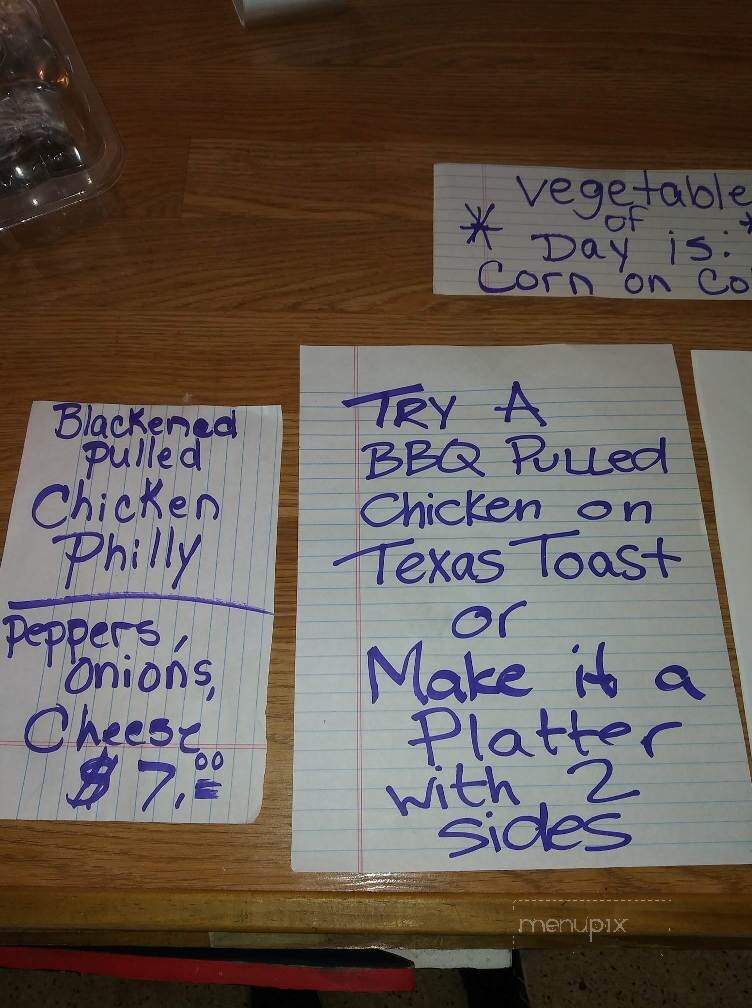 vegetable
of
* Day is: *
Corn on Co
Blackened
Pulled
Chicken
Philly
Peppers,
onions,
Cheese
$7.00
TRY A
BBQ Pulled
Chicken on
Texas Toast
or
Make it a
Platter
with 2
sides
menupix